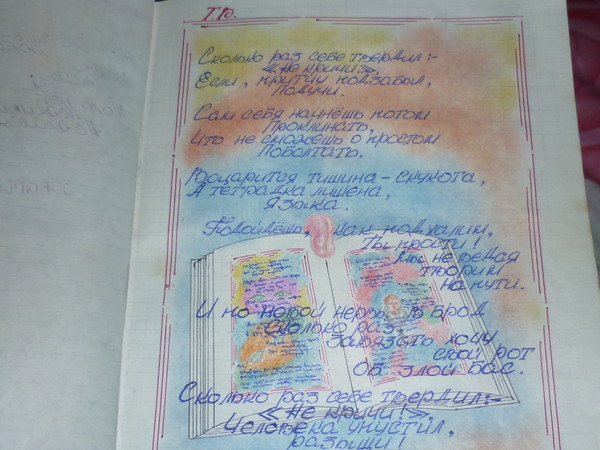 Т.Ю.
Сколько раз себе твердил:-
«Не кричи».
Если, притчу подзабыл,
Получи.
Сам себя начнёшь потом
Проклинать,
Что не сможешь о простом
Поболтать.
Воцарится тишина - скукота,
А тетрадка лишена,
Языка.
Подойдёшь, как подхалим,
Ты прости!
Мы не ведая
творим
на пути.
И но порой нервы в брод
Сколько раз
Завязать хочу
свой рот
Об злой бас.
Сколько раз себе твердил:-
«Не кричи!».
Человека упустил,
разыщи!